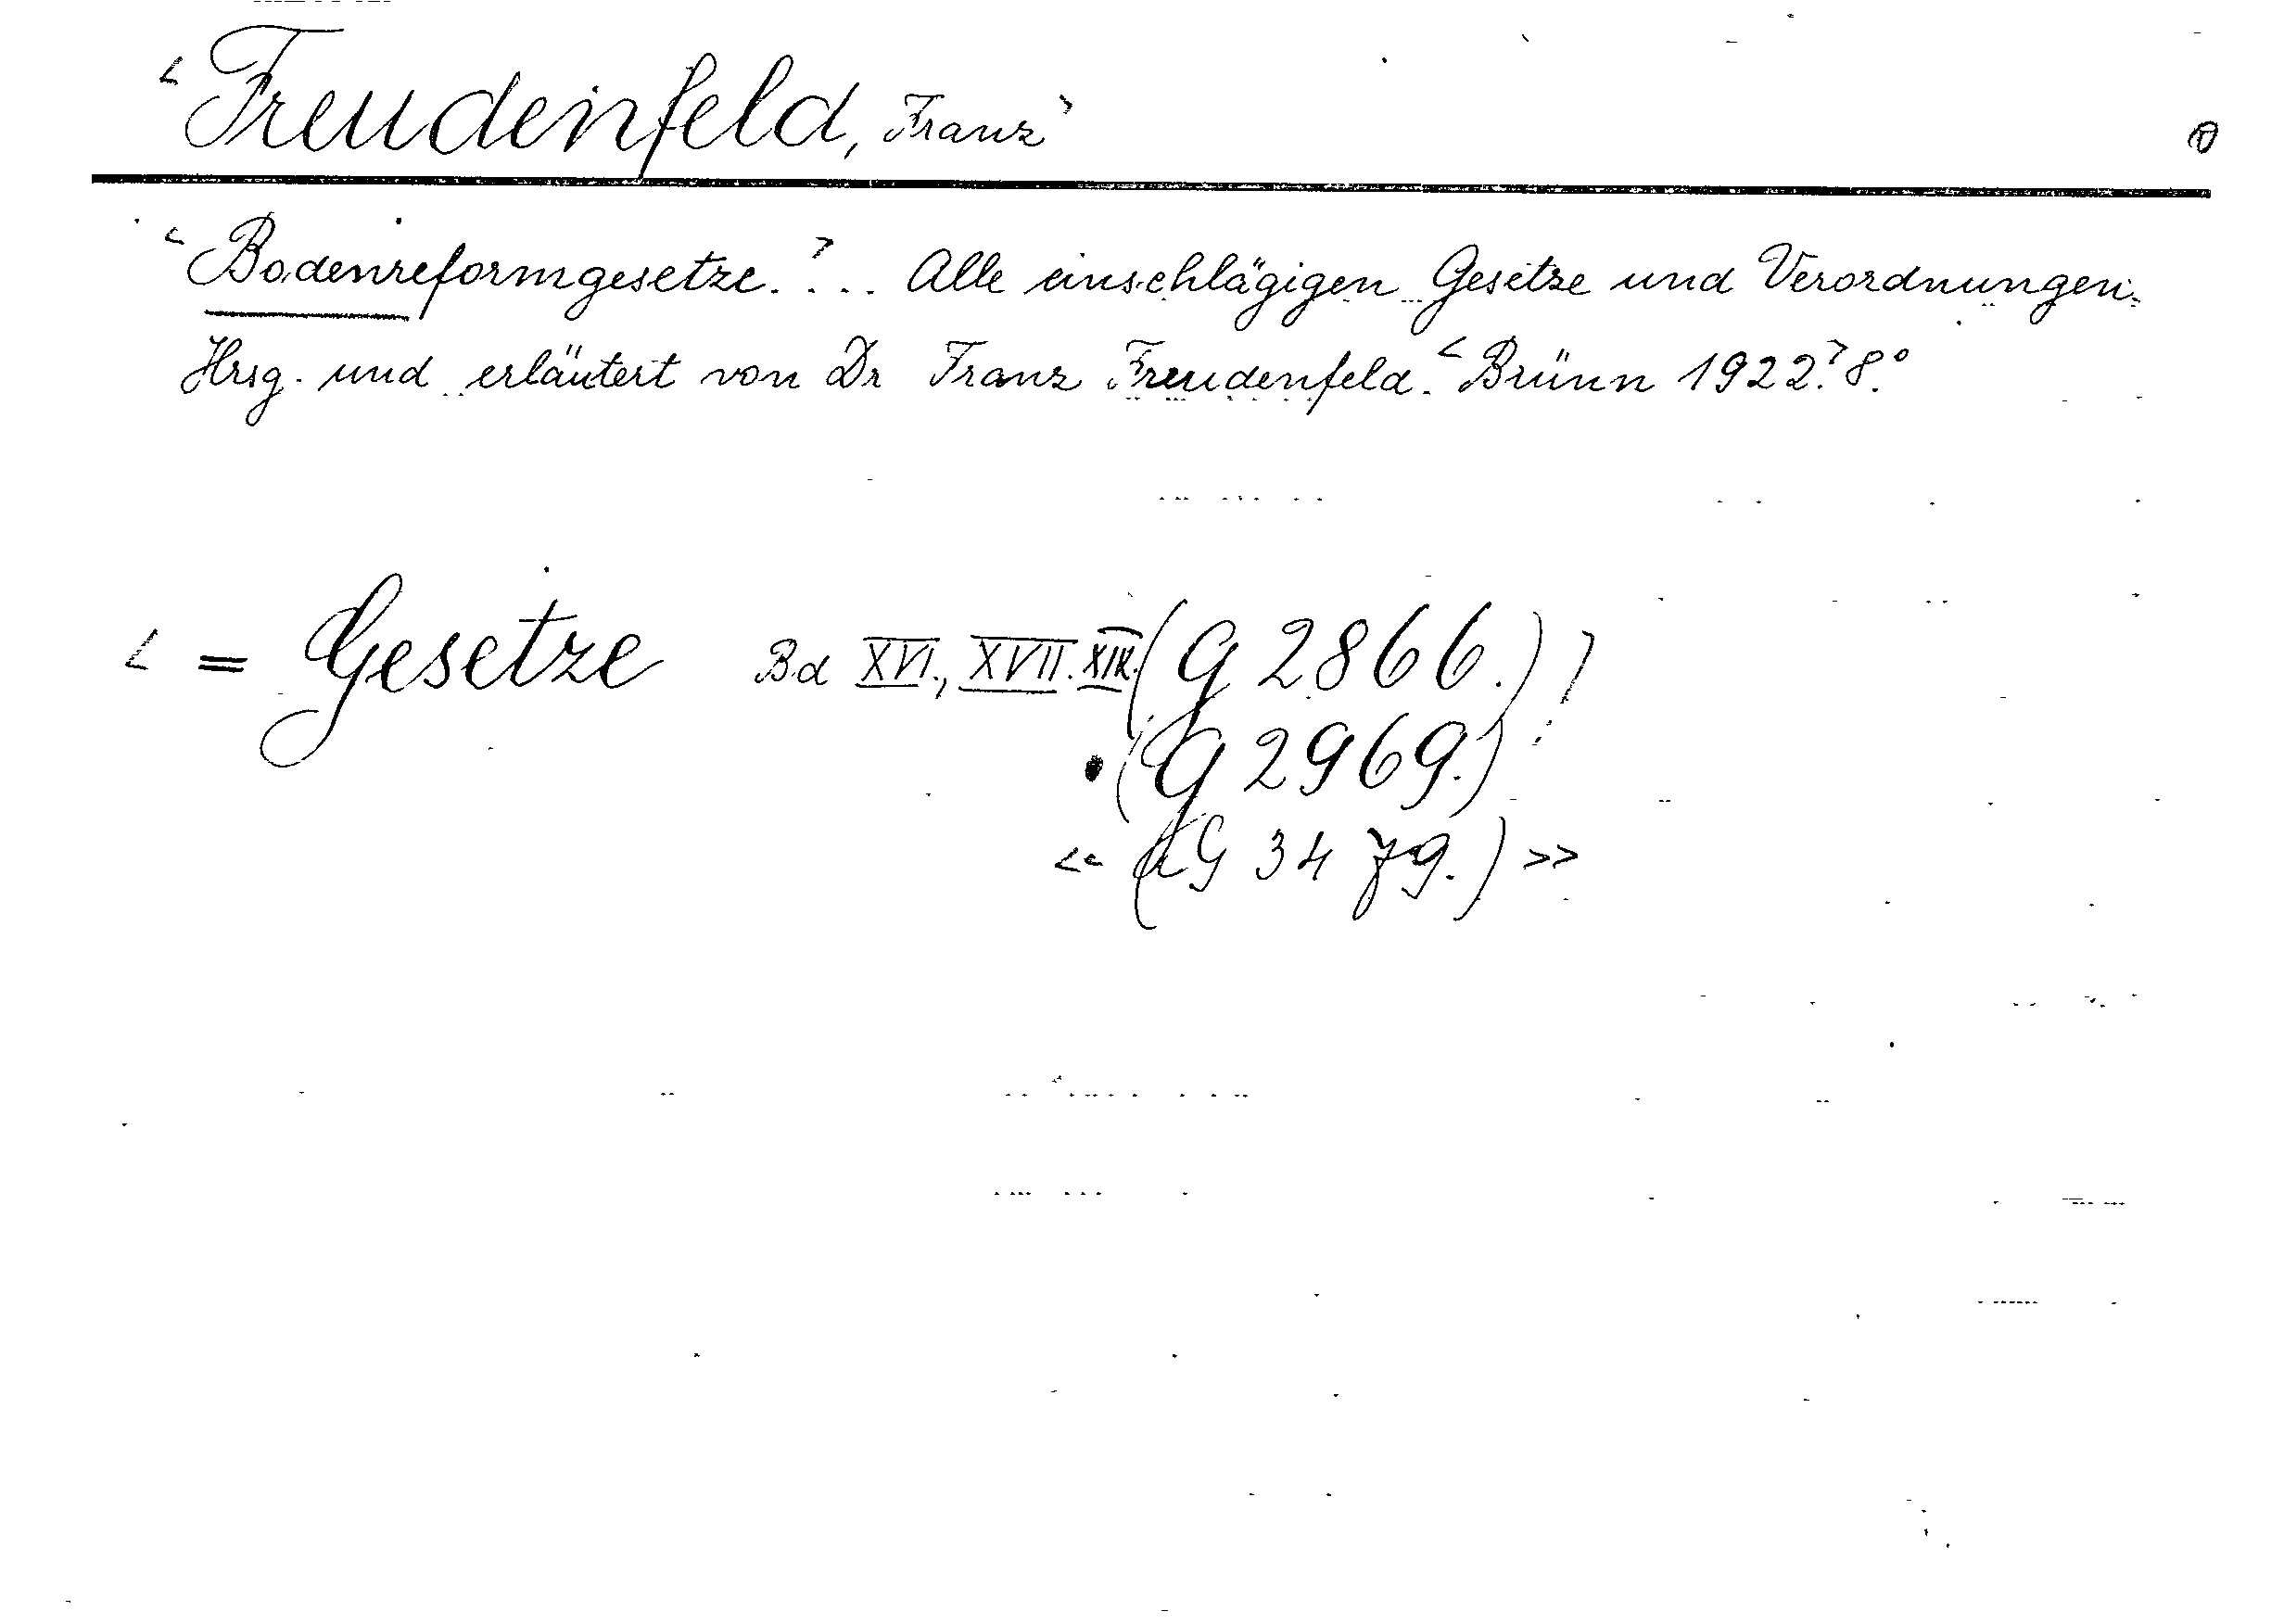 <Freudenfeld, Franz>
<Bodenreformgesetze.>... Alle einschlägigen Gesetze und Verordnungen.
Hrsg. und erläutert von Dr Franz Freudenfeld. <Brünn 1922.> 8.°
< = Gesetze Bd XVI., XVII. XIX. (G 2866.) >
(G 2969.)
<< (G 3479.) >>